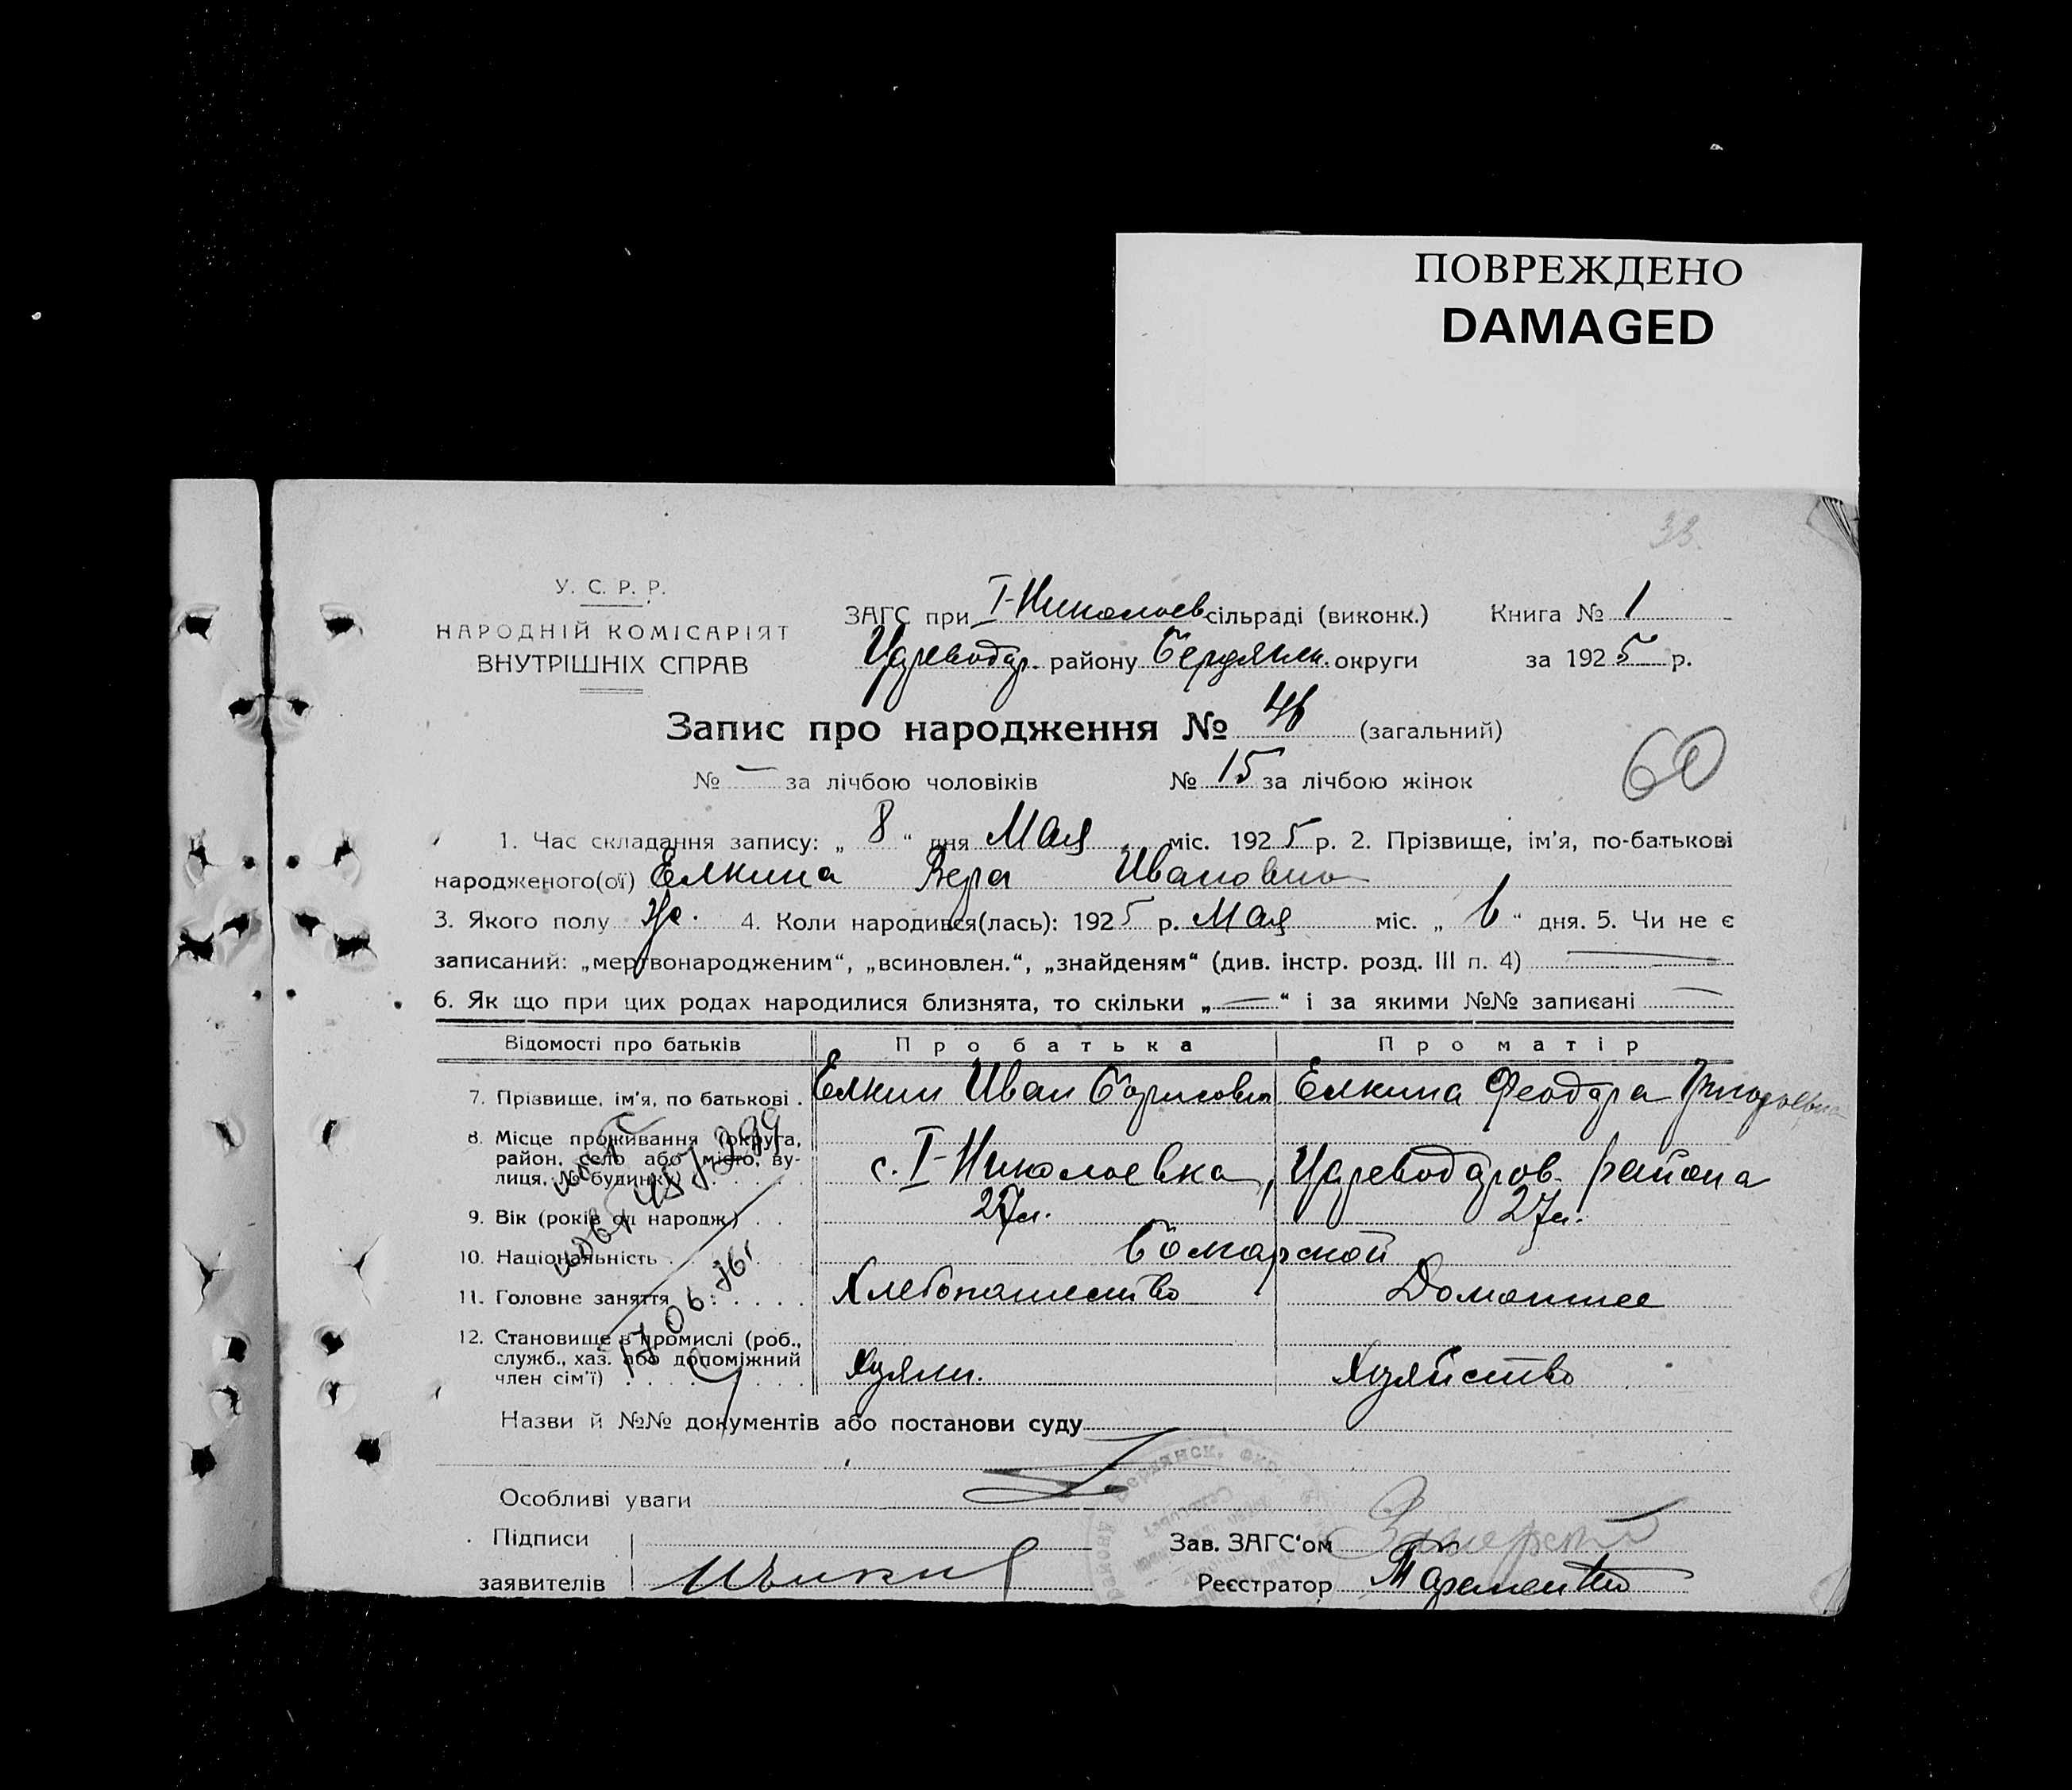 ПОВРЕЖДЕНО
DAMAGED
33.
У. С. Р. Р.
НАРОДНІЙ КОМІСАРІЯТ
ВНУТРІШНІХ СПРАВ
ЗАГС при І-Николаев сільраді (виконк.) Книга № 1
Цареводар. району Бердянск. округи за 1925 р.
Запис про народження № 46 (загальний)
№ — за лічбою чоловіків № 15 за лічбою жінок
60
1. Час складання запису: „ 8 “ дня Мая міс. 1925 р. 2. Прізвище, ім'я, по-батькові
народженого(ої) Елкина Вера Ивановна
3. Якого полу ж. 4. Коли народився(лась): 1925 р. Мая міс. „ 6 “ дня. 5. Чи не є
записаний: „мертвонародженим“, „всиновлен.“, „знайденям“ (див. інстр. розд. III п. 4) —
6. Як що при цих родах народилися близнята, то скільки „ — “ і за якими №№ записані —
Відомості про батьків Про батька Про матір
7. Прізвище, ім'я, по батькові . Елкин Иван Борисович Елкина Феодора Григорьевна
8. Місце проживання (округа,
район, село або місто, ву-
лиця, № будинку) с. І-Николаевка, Цареводаров. района
9. Вік (років од народж.) . . 27 л. 27 л.
10. Національність Болгарской
11. Головне заняття Хлебопашество Домашнее
12. Становище в промислі (роб.,
служб., хаз. або допоміжний
член сім'ї) Хозяин. Хозяйство
17 06 76г
Назви й №№ документів або постанови суду
Особливі уваги
Підписи
заявителів
Зав. ЗАГС‘ом
Реєстратор